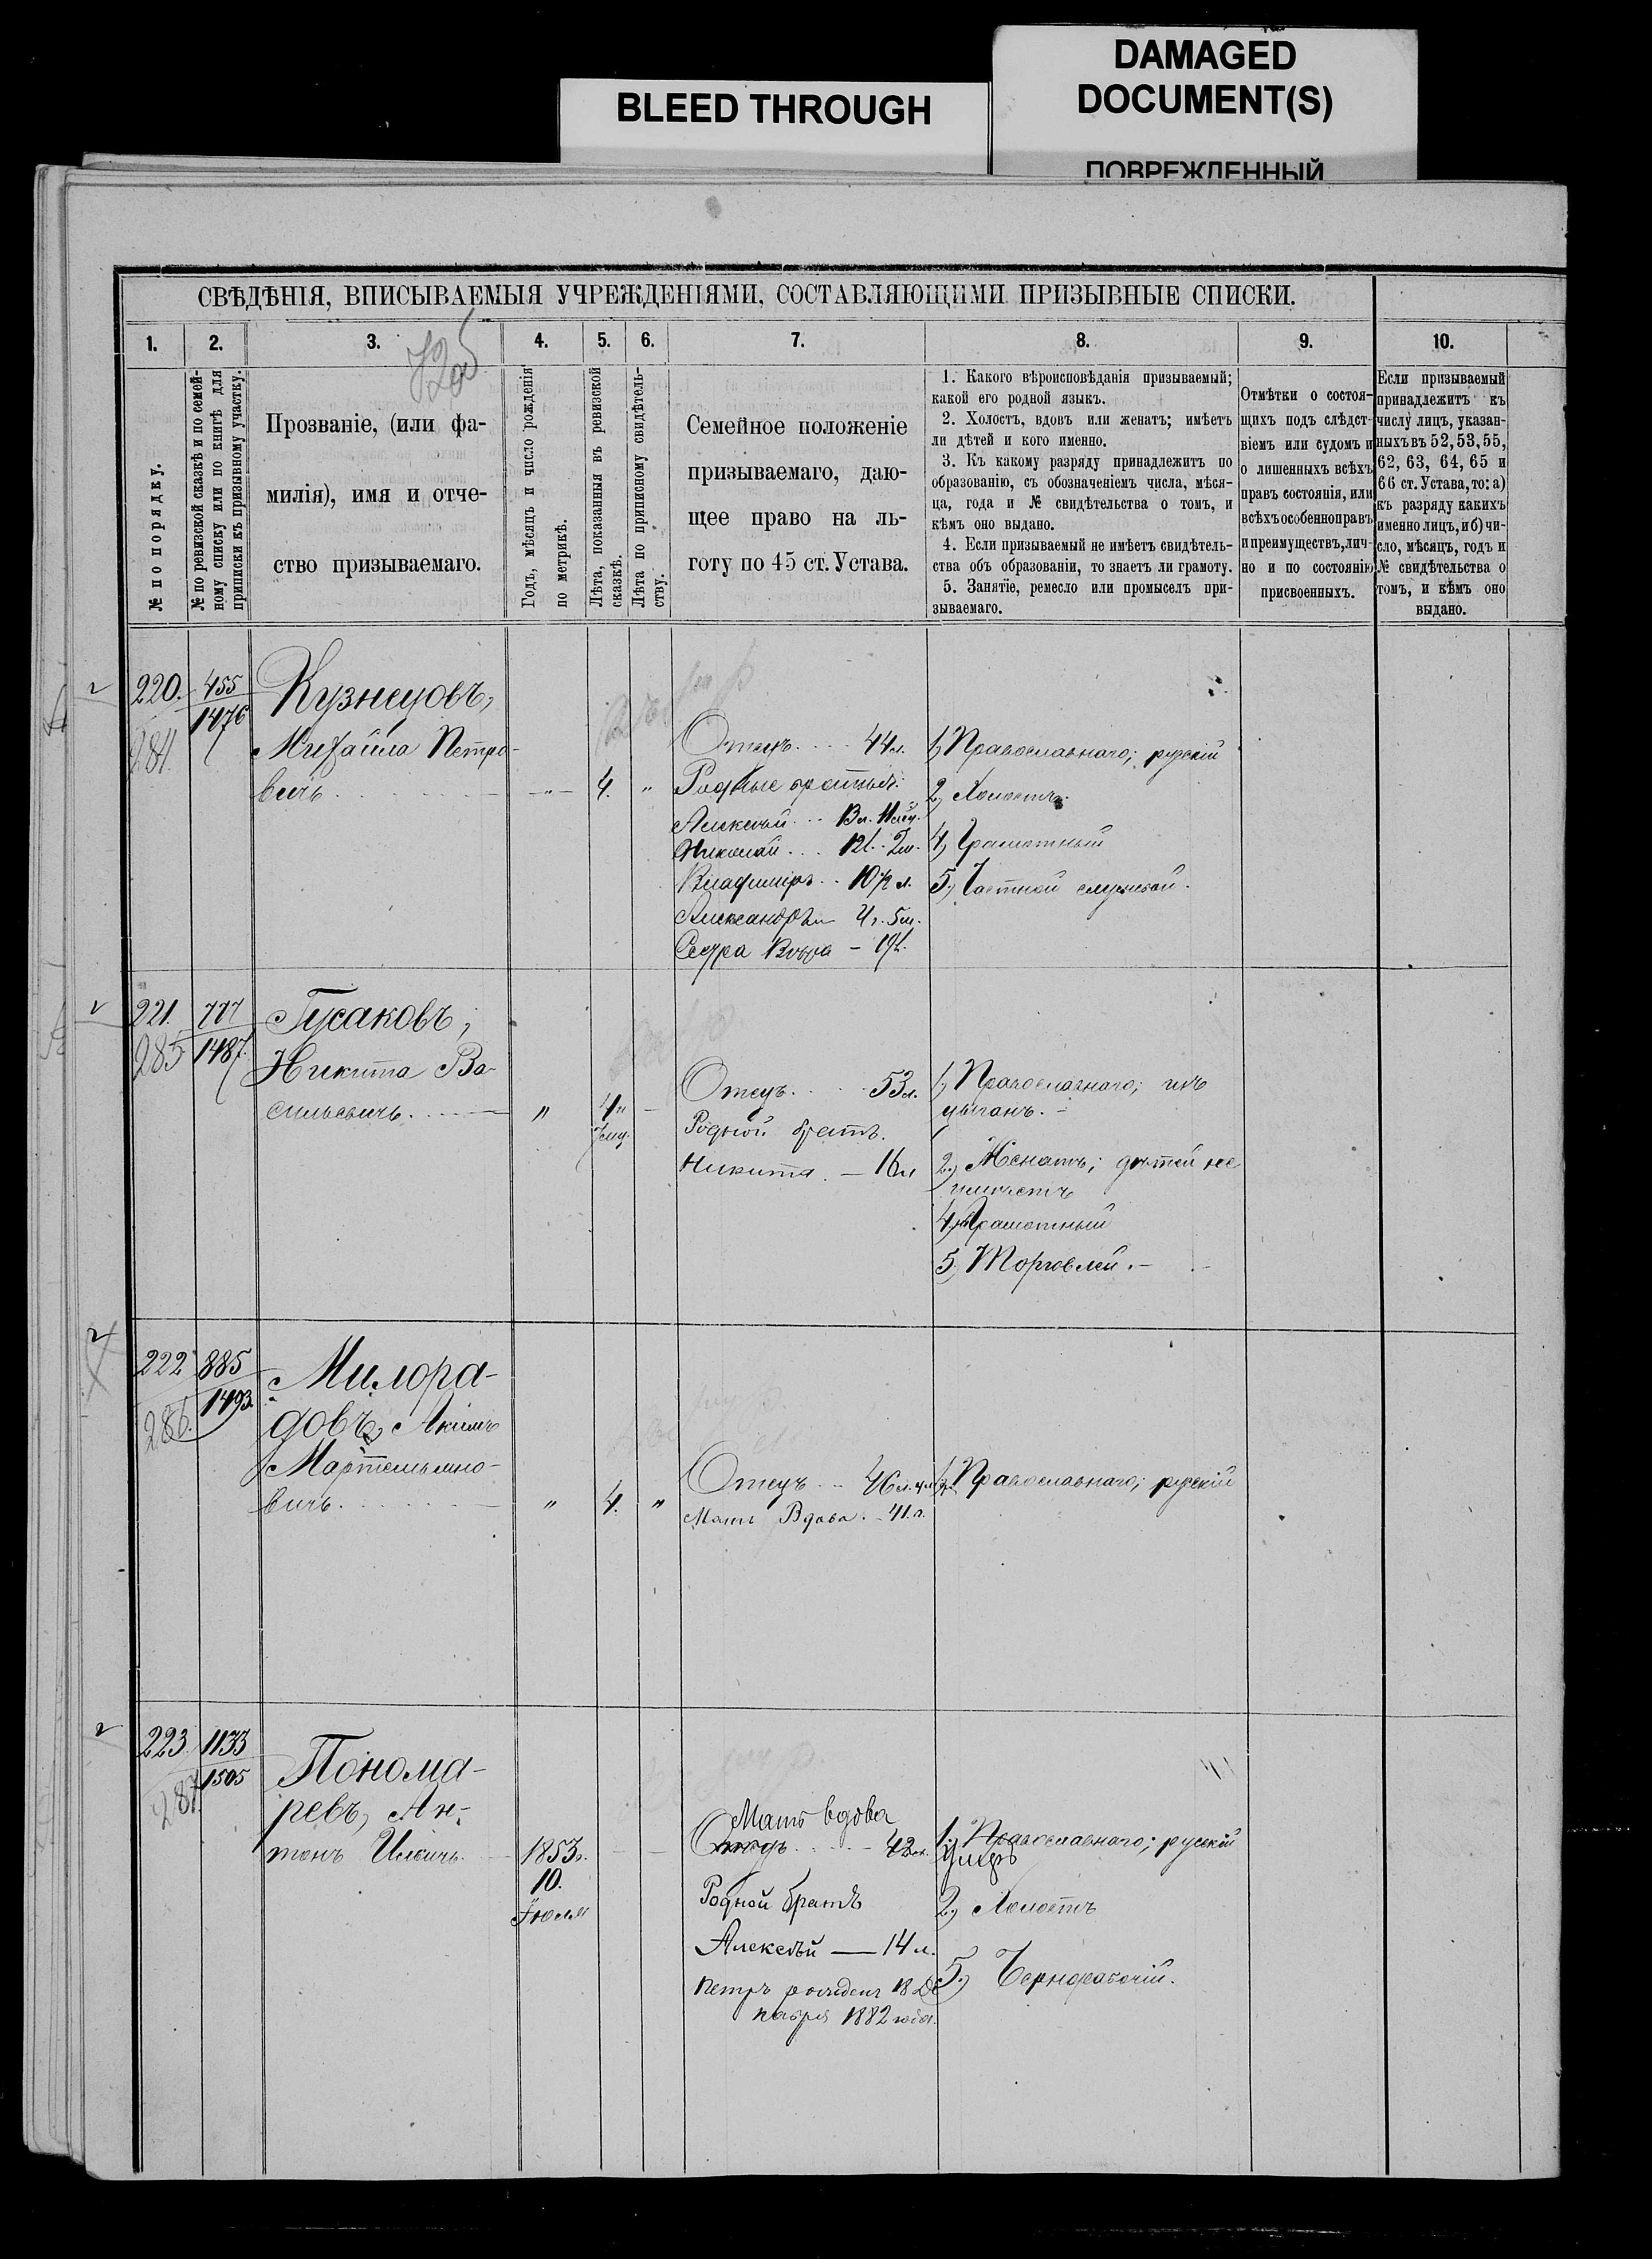 BLEED THROUGH
DAMAGED
DOCUMENT(S)
ПОВРЕЖДЕННЫЙ
СВѢДѢНІЯ, ВПИСЫВАЕМЫЯ УЧРЕЖДЕНІЯМИ, СОСТАВЛЯЮЩИМИ ПРИЗЫВНЫЕ СПИСКИ.
1.
2.
3.
4.
5.
6.
7.
8.
9.
10.
№ по порядку.
№ по ревизской сказкѣ и по семей-
ному списку или по книгѣ для
приписки къ призывному участку.
Прозваніе, (или фа-
милія), имя и отче-
ство призываемаго.
Годъ, мѣсяцъ и число рожденія
по метрикѣ.
Лѣта, показанныя въ ревизской
сказкѣ.
Лѣта по приписному свидѣтель-
ству.
Семейное положеніе
призываемаго, даю-
щее право на ль-
готу по 45 ст. Устава.
1. Какого вѣроисповѣданія призываемый;
какой его родной языкъ.
2. Холостъ, вдовъ или женатъ; имѣетъ
ли дѣтей и кого именно.
3. Къ какому разряду принадлежитъ по
образованію, съ обозначеніемъ числа, мѣся-
ца, года и № свидѣтельства о томъ, и
кѣмъ оно выдано.
4. Если призываемый не имѣетъ свидѣтель-
ства объ образованіи, то знаетъ ли грамоту.
5. Занятіе, ремесло или промыселъ при-
зываемаго.
Отмѣтки о состоя-
щихъ подъ слѣдст-
віемъ или судомъ и
о лишенныхъ всѣхъ
правъ состоянія, или
всѣхъ особенно правъ
и преимуществъ, лич-
но и по состоянію
присвоенныхъ.
Если призываемый
принадлежитъ къ
числу лицъ, указан-
ныхъ въ 52, 53, 55,
62, 63, 64, 65 и
66 ст. Устава, то: а)
къ разряду какихъ
именно лицъ, и б) чи-
сло, мѣсяцъ, годъ и
№ свидѣтельства о
томъ, и кѣмъ оно
выдано.
220.
284
455
1476
Кузнецовъ,
Михайла Петро-
вичъ
4.
Отецъ 44 л.
Родные братья:
Алексѣй
Николай
Владиміръ 10½ л.
Александръ 4 г. 5 м.
Сестра Вѣра – 19 л.
1, Православнаго; русскій
2, Холостъ.
4, Грамотный
5, Частной службой.
221.
285
777
1487.
Гусаковъ,
Никита Ва-
сильевичъ
Отецъ 53 л.
Родной братъ.
Никита – 16 л
1, Православнаго; изъ
цыганъ. –
2, Женатъ; дѣтей не
имѣетъ
4, Грамотный
5, Торговлей. –
222
286.
885
1493.
Милора-
довъ, Акимъ
Мартемьяно-
вичъ.
4.
Отецъ
Мать Вдова 41 л.
1, Православнаго; русскій
223.
287.
1133
1505
Понома-
ревъ, Ан-
тонъ Ильичъ
1853 г.
10.
Іюля
Мать вдова
Отецъ 42 л.
Родной братъ
Алексѣй — 14 л.
Петръ рожденъ 18 Де
кабря 1882 года.
1, Православнаго; русскій
умеръ
2, Холостъ
5, Чернорабочій.